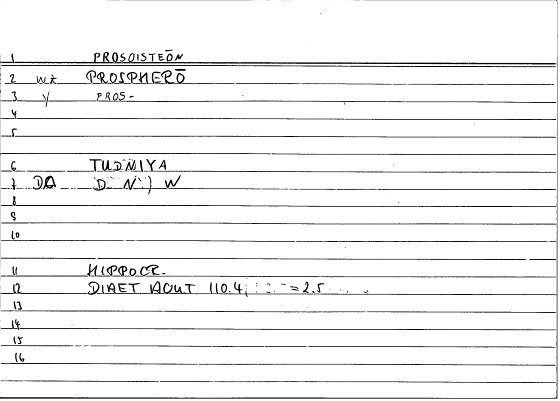 1 PROSOISTEŌN
2 wk PROSPHERŌ
3 y PROS-
4
5
6 TUDNIYA
7 D N W
8
9
10
11 HIPPOCR.
12 DIAET ACUT 110.4, = 2.5
13
14
15
16